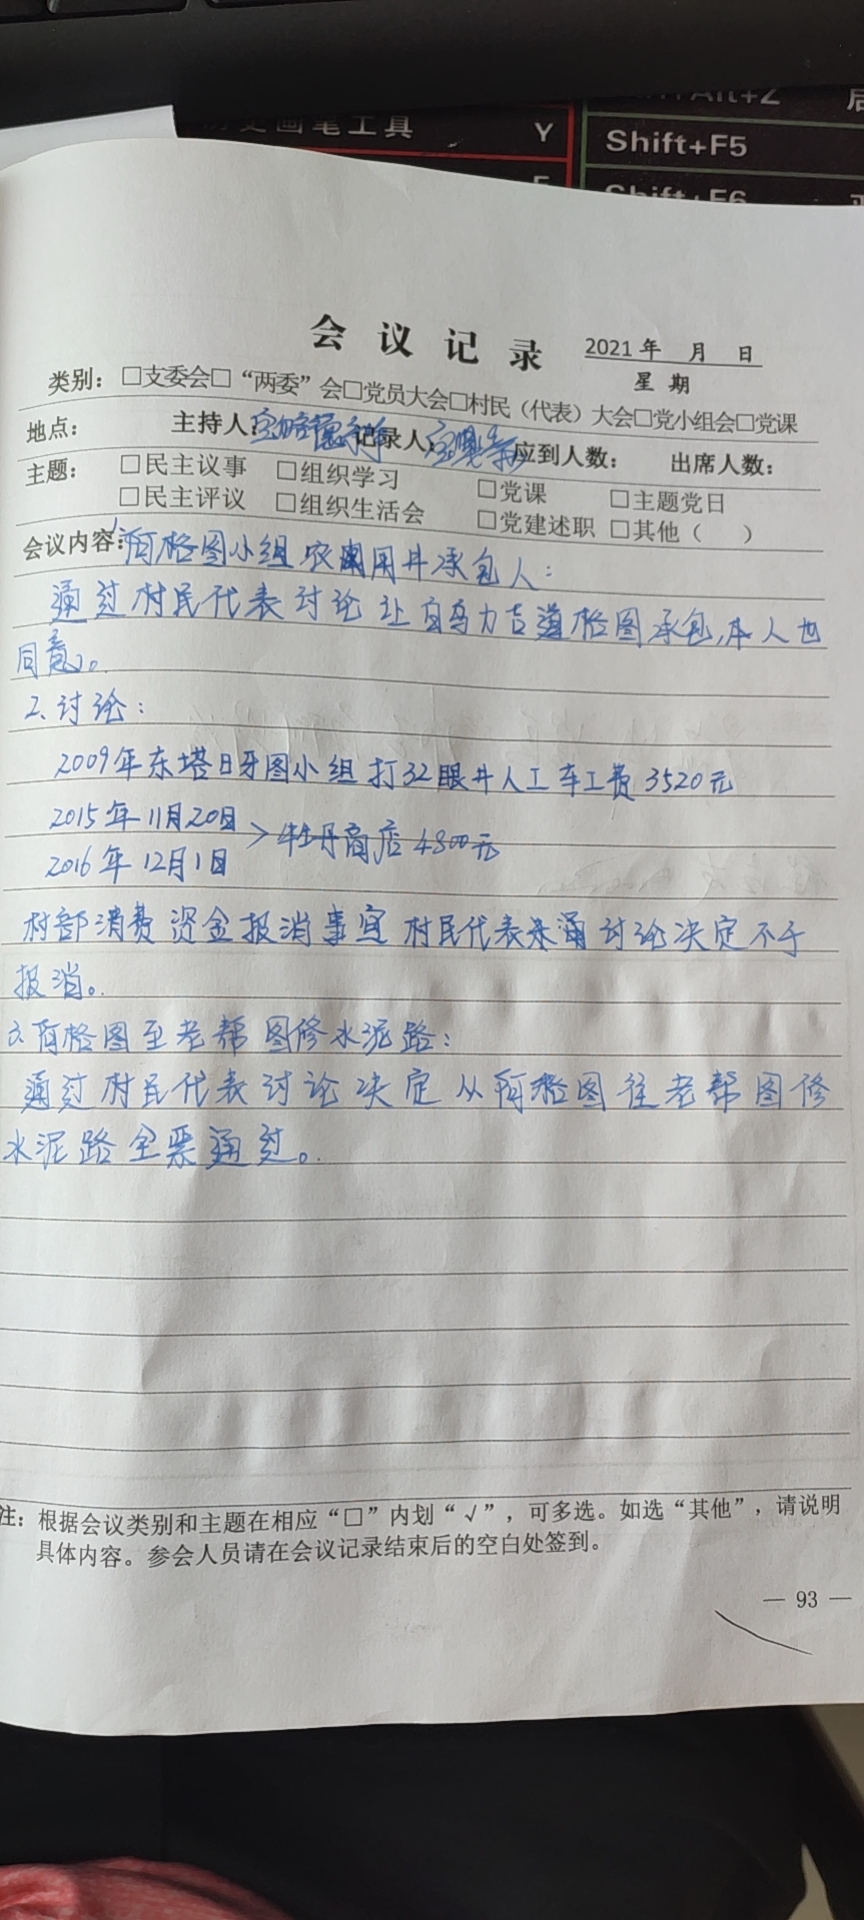 Alt+Z
历史画笔工具 Y
Shift+F5
Shift+F6
会议记录 2021年 月 日
星期
类别：□支委会□“两委”会□党员大会□村民（代表）大会□党小组会□党课
地点： 主持人： 记录人： 应到人数： 出席人数：
主题：□民主议事 □组织学习 □党课 □主题党日
□民主评议 □组织生活会 □党建述职 □其他（ ）
会议内容：1.阿格图小组农用井承包人：
通过村民代表讨论让白乌力吉道格图承包,本人也
同意。
2、讨论：
2009年东塔日牙图小组打32眼井人工车工费3520元
2015年11月20日
2016年12月1日 >牡丹商店4800元
村部消费资金报消事宜 村民代表未通讨论决定不予
报消。
3.阿格图至老帮图修水泥路：
通过村民代表讨论决定从阿格图往老帮图修
水泥路全票通过。
注：根据会议类别和主题在相应“□”内划“√”，可多选。如选“其他”，请说明
具体内容。参会人员请在会议记录结束后的空白处签到。
— 93 —